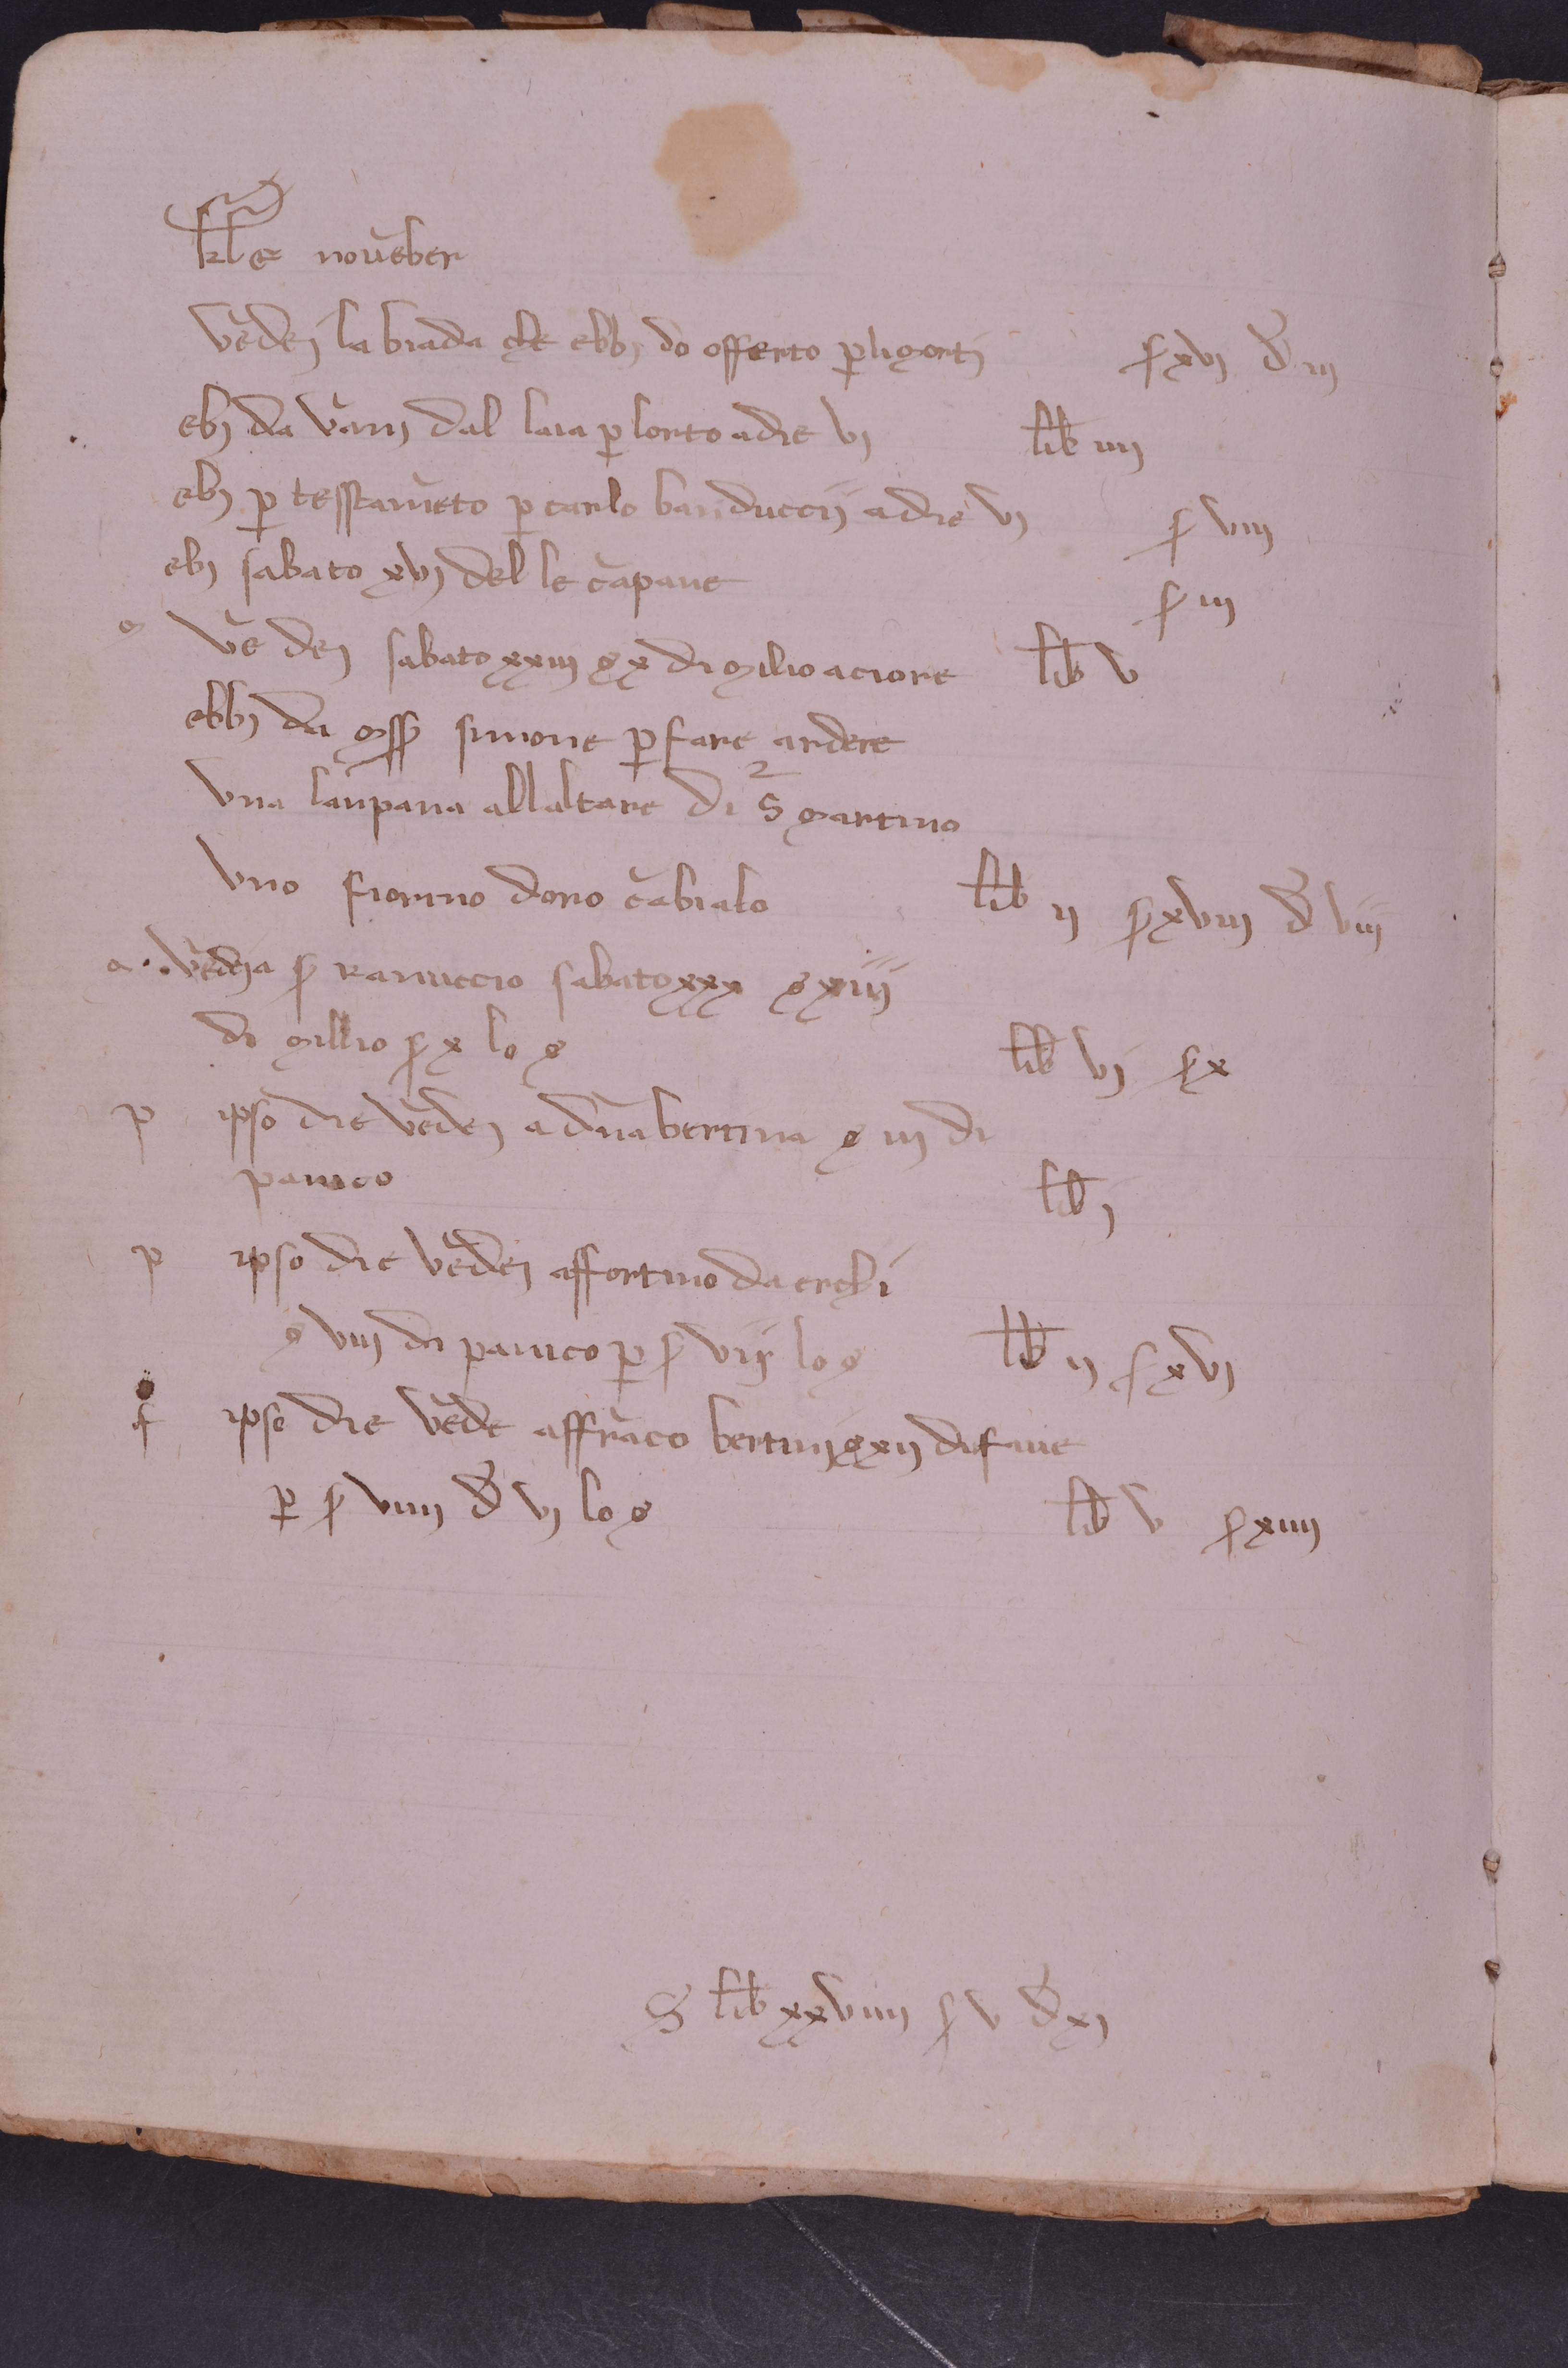 kl̅e noue̅ber
ve̅dei la biada che ebbi do offerto p̲ li morti ſ xvj d̅ iij
ebj da va̅nj dal laia p̲ lorto a die vj lib̅ iiij
ebj p̲ tesstame̅to p̲ carlo banduccij a die vj ſ viij
ebj sabato xvj del le ca̅pane ſ iij
m ve̅ dej sabato xxiij s x di milio a ciore lib̅ v
ebbj da mss̅ simone p̲ fare ardere
vna la̅npana allaltare di S̅ martino
vno fiorino doro ca̅biato lib̅ ij ſ xviij d̅ viij
m ve̅dej a ſ ranuccio sabato xxx s xiij
di millio ſ x lo s lib̅ vj ſ x
p ipso die ve̅dej a dn̅a bertina s iij di
panico lib̅ j
p ipso die ve̅dej affortino da erchi
s viij di panico p̲ ſ vij lo s lib̅ ij ſ xvj
f ipso die ve̅de affra̅co bertinj s xij di faue
p̲ ſ viiij d̅ vj lo s lib̅ v ſ xiiij
S̅ lib̅ xxviiij ſ v d̅ xj